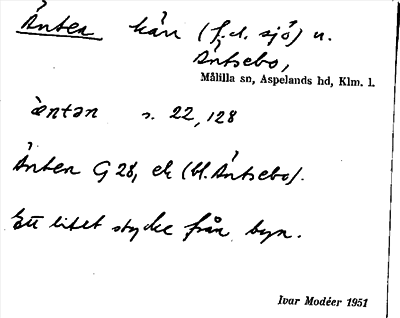 Änten kärr (f.d. sjö) n.
Äntsebo,
Målilla sn, Aspelands hd, Klm. l.
ä̀ntən s. 22, 128
Änten G 28, ek (bl. Äntsebo).
Ett litet stycke från byn.
Ivar Modéer 1951